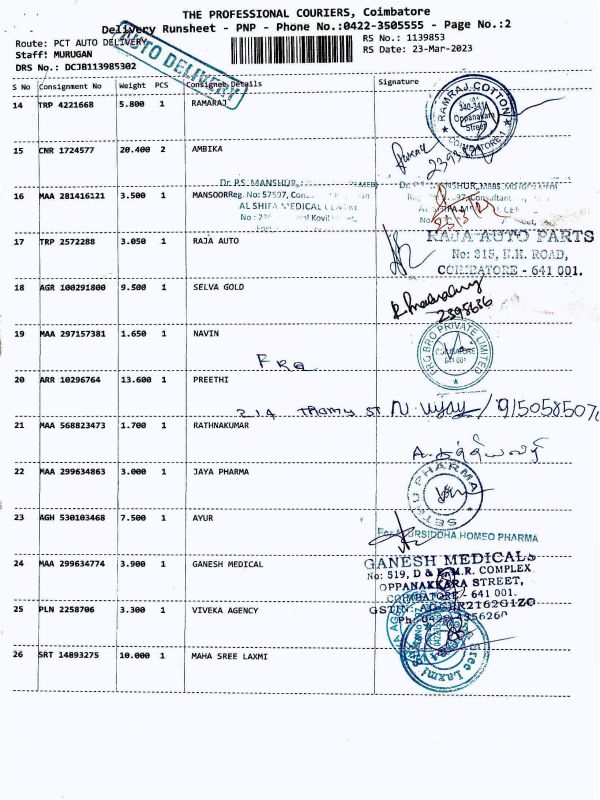 THE PROFESSIONAL COURIERS, Coimbatore
Delivery Runsheet - PNP - Phone No.:0422-3505555 - Page No.:2
Route: PCT AUTO DELIVERY
Staff: MURUGAN
DRS No.: DCJB113985302
AUTO DELIVERY
RS No.: 1139853
RS Date: 23-Mar-2023
S No Consignment No Weight PCS Consignee Details Signature
14 TRP 4221668 5.800 1 RAMARAJ
RAMRAJ COTTON
340-341
Oppanakara
Street
COIMBATORE-1
15 CNR 1724577 20.400 2 AMBIKA
Dr. P.S. MANSHUR,
16 MAA 281416121 3.500 1 MANSOOR
Reg. No: 57597,
AL SHIFA MEDICAL
17 TRP 2572288 3.050 1 RAJA AUTO
RAJA AUTO PARTS
No: 315, N.H. ROAD,
COIMBATORE - 641 001.
18 AGR 100291800 9.500 1 SELVA GOLD
2395636
19 MAA 297157381 1.650 1 NAVIN
PRO BRO PRIVATE LIMITED
COIMBATORE
641 001
20 ARR 10296764 13.600 1 PREETHI
214 Thomy ST N. Vijay / 9150585070
21 MAA 568823473 1.700 1 RATHNAKUMAR
22 MAA 299634863 3.000 1 JAYA PHARMA
SETHU PHARMA
23 AGH 530103468 7.500 1 AYUR
HOMEO PHARMA
24 MAA 299634774 3.900 1 GANESH MEDICAL
GANESH MEDICALS
No: 519, D & F.M.R. COMPLEX
OPPANAKKARA STREET,
COIMBATORE - 641 001.
25 PLN 2258706 3.300 1 VIVEKA AGENCY
26 SRT 14893275 10.000 1 MAHA SREE LAXMI
Sree Laxmi